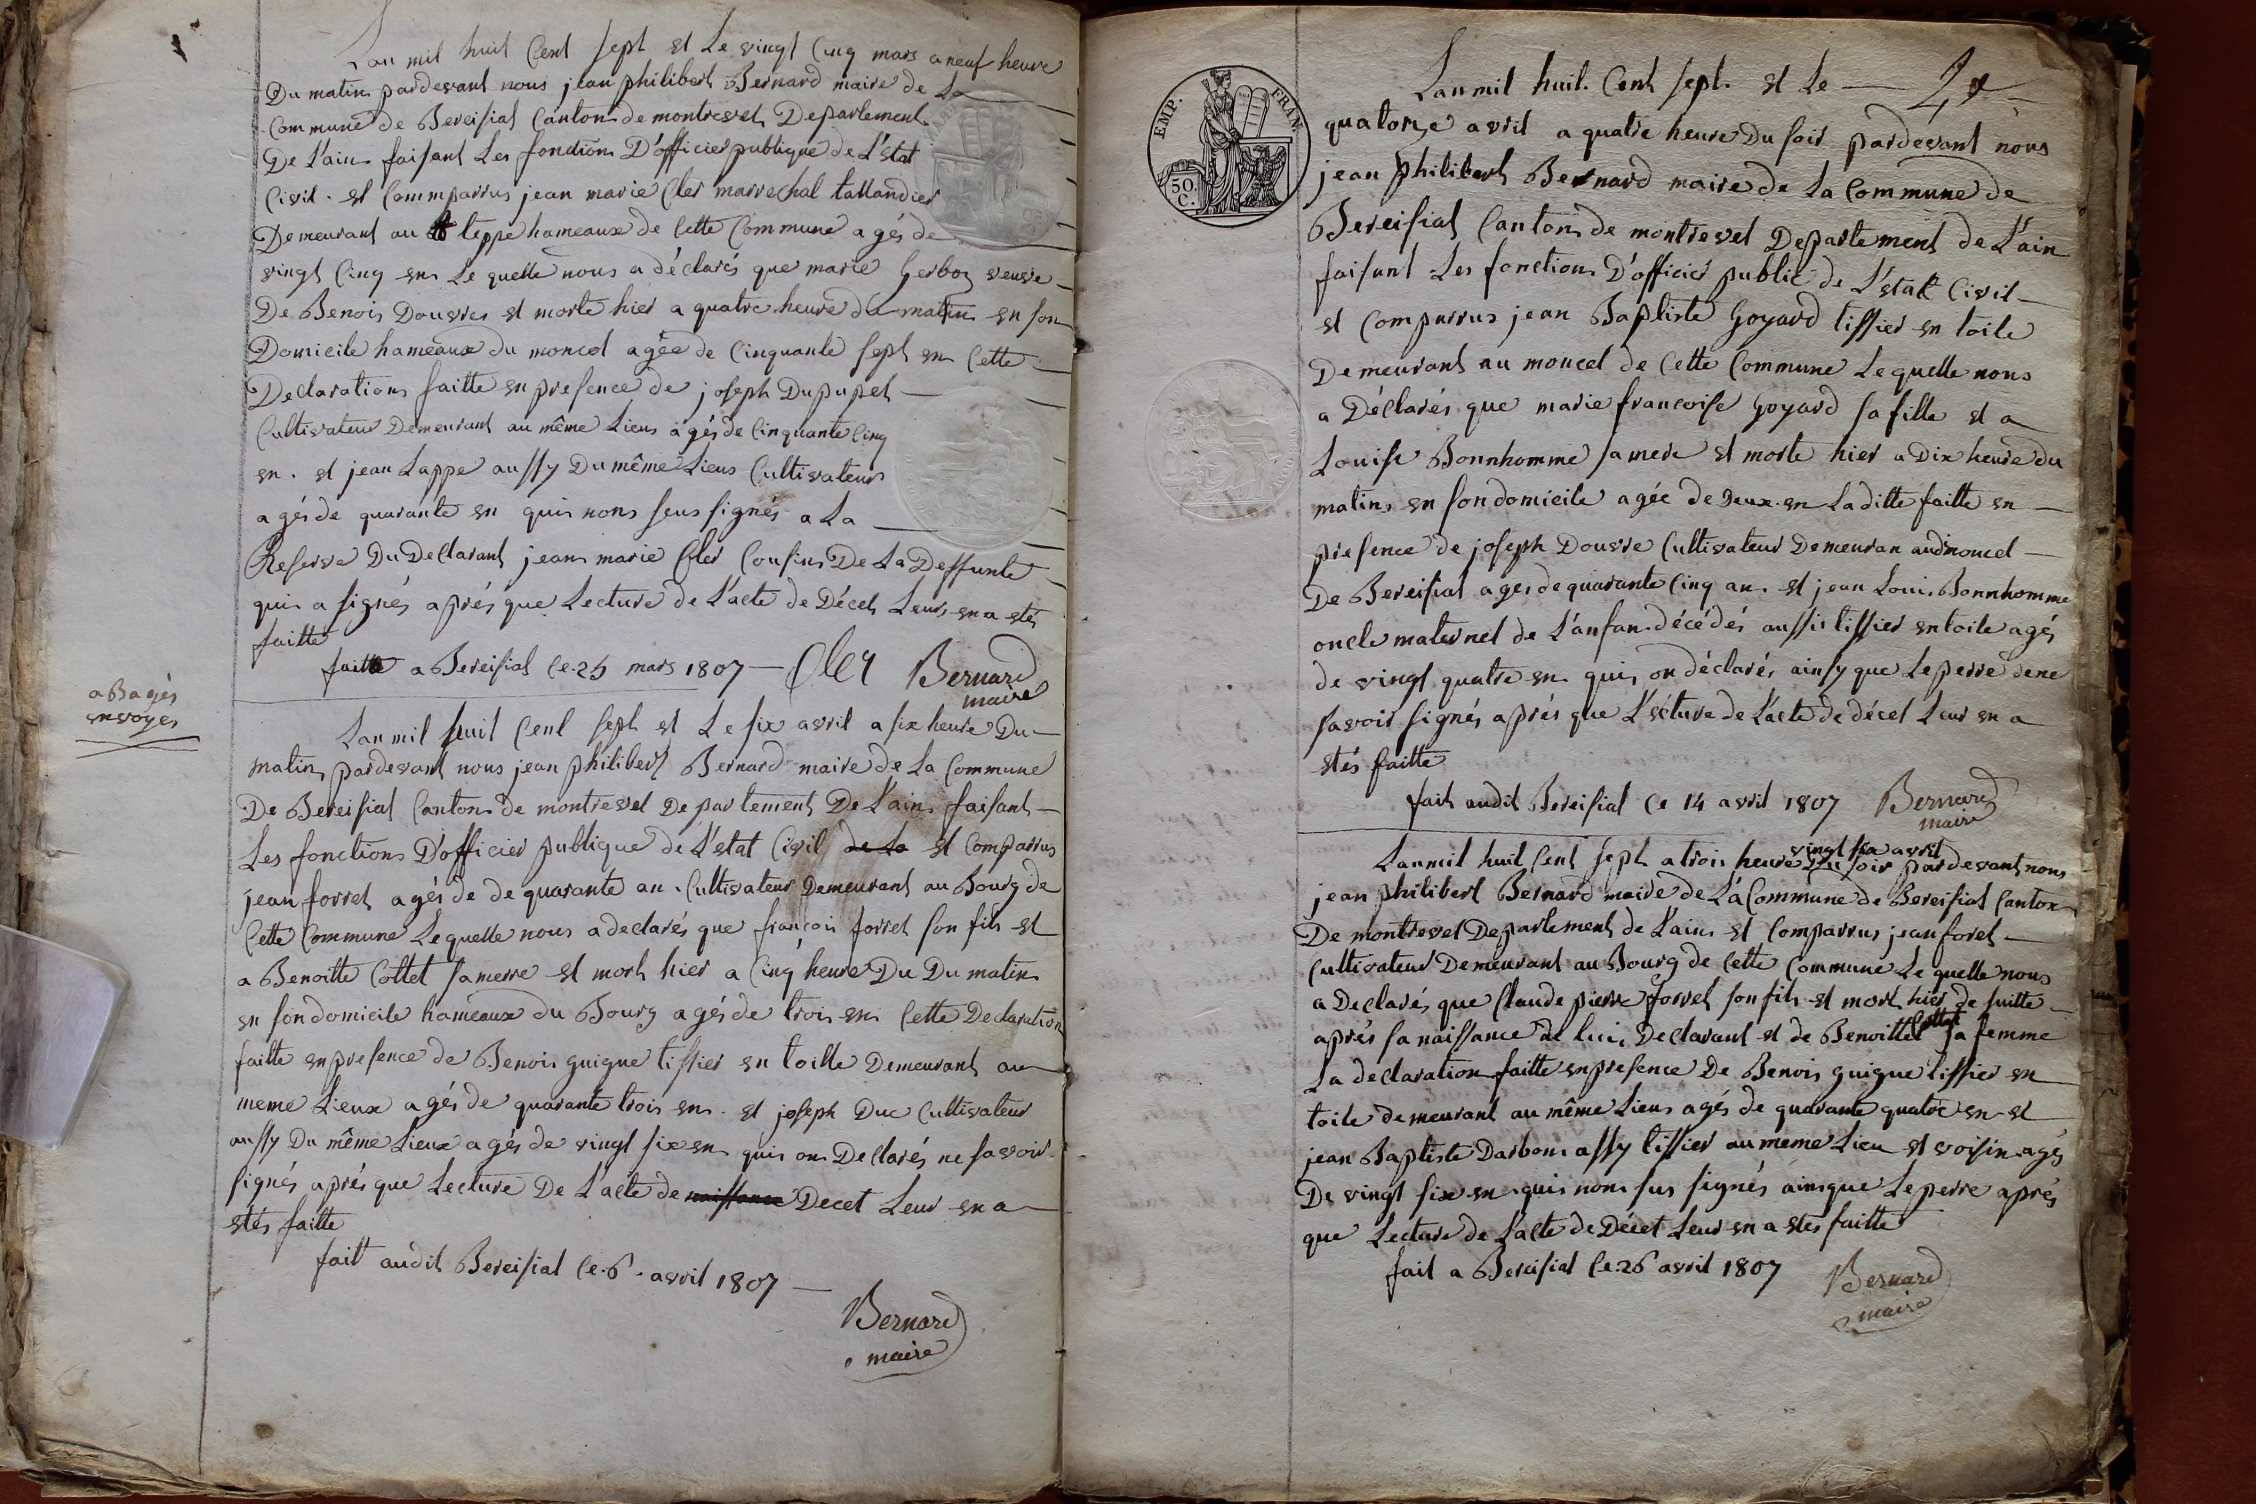 Lan mil huit Cent sept et Le vingt Cinq mars a neuf heure
Du matin pardevant nous jean philibert Bernard maire de La
Commune de Bereisiat Canton de montrevel Departement
De L'ain faisant Les fonctions D'officier publique de L'état
Civil. et Commparrus jean marie Cler marrechal tallandier
Demeurant au teppe hameaux de Cette Commune agés de
vingt Cinq en Le quelle nous a déclarés que marie Gerboz veuve
De Benois Douvres et morte hier a quatre heure du matin en son
Domicile hameaux du moncel agée de Cinquante sept en Cette
Declarations faitte en presence de joseph Dupupet
Cultivateur Demeurant au même Lieus agés de Cinquante Cinq
en. et jean Lappe aussy Du même Lieus Cultivateur
agés de quarante en quis nons seus signés a La
Reserve Du Declarant jean marie Cler Cousins De La Deffunte
quis a signés aprés que Lecture de L'acte de Décet Leurs en a etés
faitte
faitte a Bereisiat Ce 25 mars 1807 Cler Bernard
maire
a Bagés
envoyer
Lan mil huit Cent sept et Le six avril a six heure Du
matin pardevant nous jean philibert Bernard maire de La Commune
De Bereisiat Canton de montrevel Departement De L'ain faisant
Les fonctions D'officier publique de L'état Civil de La et Comparrus
jean forret agés de de quarante an. Cultivateur Demeurant au Bourg de
Cette Commune Le quelle nous a declarés que francois forret son fils et
a Benoitte Cottet samerre et mort hier a Cinq heure Du Du matin
en son domicile hameaux du Bourg agés de trois en Cette Declaration
faitte en presence de Benois guigue tissier en toille Demeurant au
meme Lieux agés de quarante trois en. et joseph Duc Cultivateur
aussy Du même Lieux agés de vingt six en quis ons Declarés ne savoir
signés aprés que Lecture De L'acte de naissance Decet Leur en a
etés faitte
fait audit Bereisiat Ce 6. avril 1807
Bernard
maire
EMP. FRAN.
50.
C.
Lan mil huit. Cent sept. et Le
quatorze avril a quatre heure Du soir pardevant nous
jean philibert Bernard maire de La Commune de
Bereisiat Canton de montrevel Departement de L'ain
faisant Les fonctions D'officier public de L'état Civil
et Comparrus jean Baptiste Goyard tissier en toile
Demeurant au moncel de Cette Commune Le quelle nous
a Déclarés que marie francoise Goyard sa fille et a
Louise Bonnhomme samere et morte hier a Dix heure du
matins en son domicile agée de Deux en La ditte faitte en
presence de joseph Douvre Cultivateur Demeuran audmoncel
De Bereisiat agés de quarante Cinq an. et jean Louis Bonnhomme
oncle maternel de L'anfan décédés aussi tissier en toile agés
de vingt quatre en quis on déclarés ainsy que Le perre dene
savoir signés aprés que L'écture de L'acte de décet Leur en a
etés faitte
fait audit Bereisiat Ce 14 avril 1807 Bernard
maire
vingt six avril
Lan mil huit Cent sept a trois heure du soir pardevant nous
jean philibert Bernard maire de La Commune de Bereisiat Canton
De montrevel Departement de L'ain et Comparrus jean foret
Cultivateur Demeurant au Bourg de Cette Commune Le quelle nous
a Declarés que Claude pierre forret son fils et mort hier de suitte
Cottet
aprés sa naissance de lui Declarant et de Benoitte sa femme
La declaration faitte en presence De Benois guigue tissier en
toile demeurant au même Lieus agés de quarante quatre en et
jean Baptiste Darbon assy tissier au meme Lieu et voisin agés
De vingt six en quis nons sus signés ainsque Le perre aprés
que Lecture de L'acte de Décet Leur en a etés faitte
fait a Bereisiat Ce 26 avril 1807 Bernard
maire